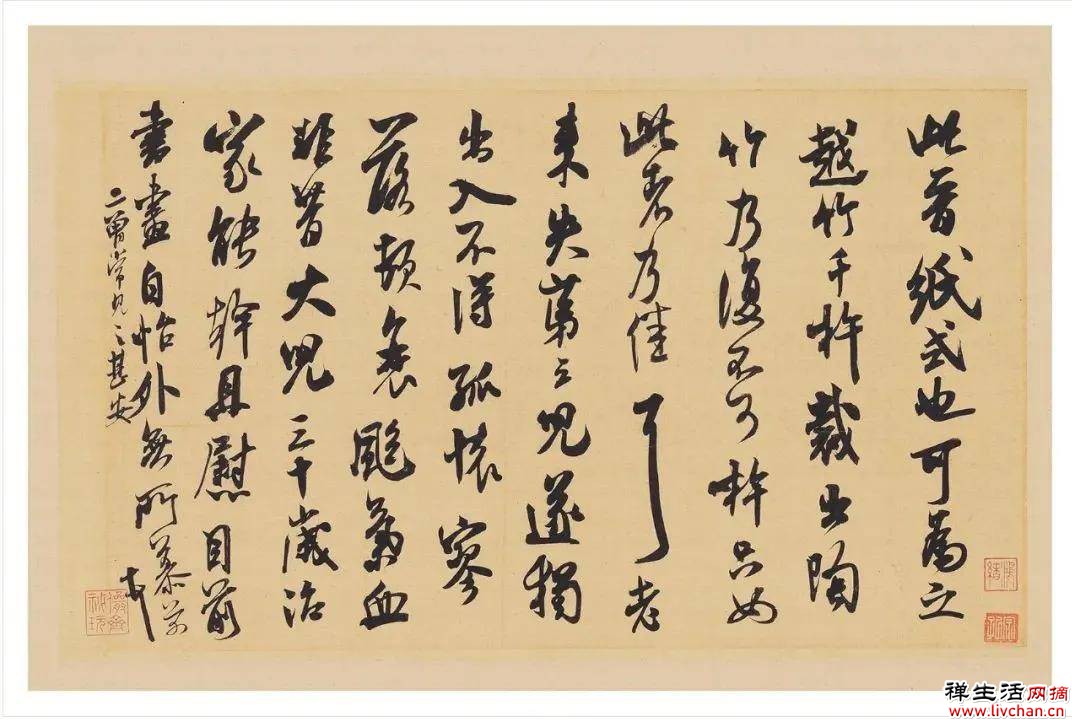 此晉紙式也可為之
越竹千杵裁出陶
竹乃復不可杵只如
此者乃佳耳老
來失第三兒遂獨
出入不得孤懷寥
落頓衰颸氣血
非昔大兒三十歲治
家能幹且慰目前
書畫自怡外無所慕芾
二曾常見之甚安
儼齋秘玩
禅生活网摘
www.livchan.cn